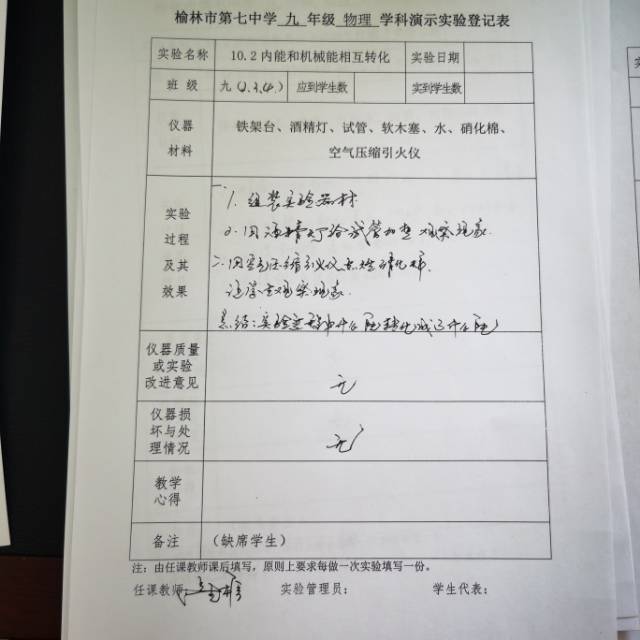 榆林市第七中学 九 年级 物理 学科演示实验登记表
实验名称 10.2内能和机械能相互转化 实验日期
班 级 九(2.3.4.) 应到学生数 实到学生数
仪器材料 铁架台、酒精灯、试管、软木塞、水、硝化棉、
空气压缩引火仪
实验过程及其效果
一、1. 组装实验器材
2. 用酒精灯给试管加热 观察现象
二、用空气压缩引火仪点燃硝化棉.
让学生观察现象.
总结:实验过程中什么能转化成了什么能
仪器质量或实验改进意见 无
仪器损坏与处理情况 无
教学心得
备注 (缺席学生)
注:由任课教师课后填写,原则上要求每做一次实验填写一份。
任课教师: 实验管理员: 学生代表: